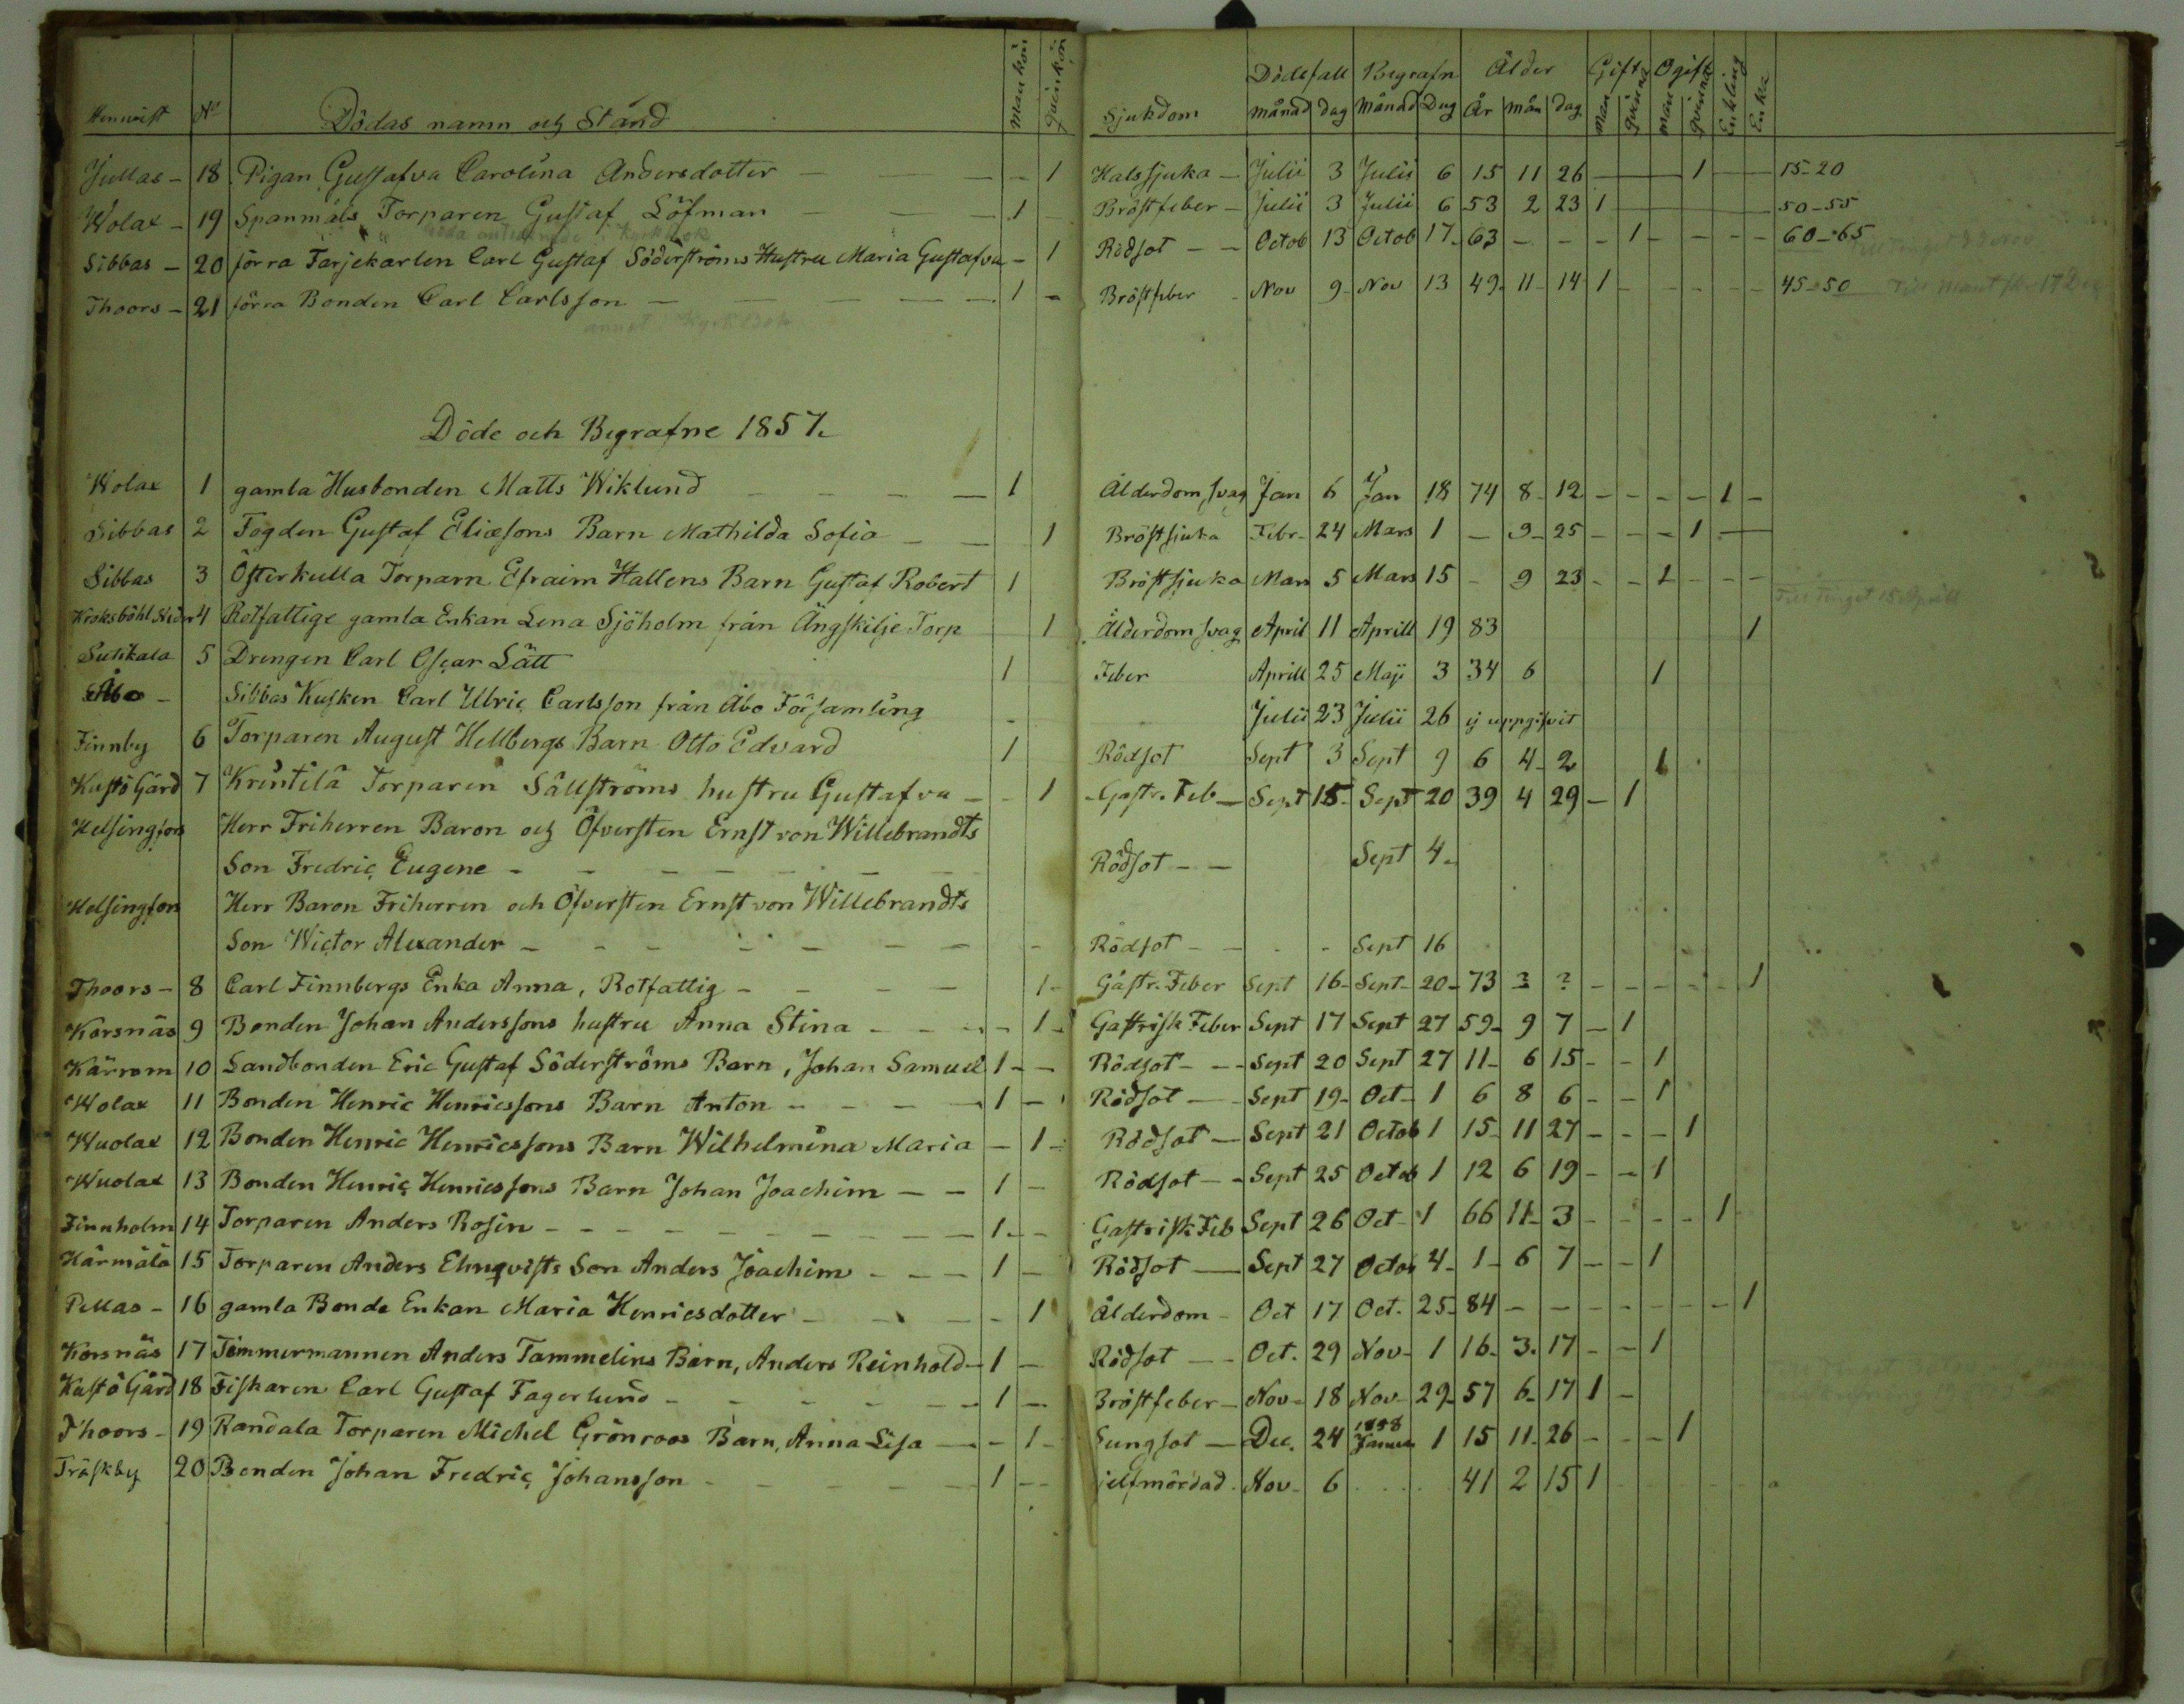 Hemvist No Dödas namn och Stånd Mankön Qvinkön Sjukdom Dödsfall månad dag Begrafn Månad Dag Ålder År mån dag Gifta Man qvinna Ogift man qvinna Enkling Enka
Jullas - 18 Pigan Gustafva Carolina Andersdotter - 1 Halssjuka - Julii 3 Julii 6 15 11 26 1 15-20
Wolax - 19 Spanmåls Torparen Gustaf Löfman 1 Bröstfeber - Julii 3 Julii 6 53 2 23 1 50-55
Sibbas - 20 förra Färjekarlen Carl Gustaf Söderströms Hustru Maria Gustafva - 1 Rödsot - - Octob 13 Octob 17 63 - - - 1 60-65
Thoors - 21 förra Bonden Carl Carlsson - 1 - Bröstfeber - Nov 9 Nov 13 49 11 14 1 45-50 Till Mant skr 17 Dec
annot. KyrkBok
Döde och Begrafne 1857.
Wolax 1 gamla Husbonden Matts Wiklund 1 Ålderdomsvag Jan 6 Jan 18 74 8 12 - - - - 1 -
Sibbas 2 Fogden Gustaf Eliæsons Barn Mathilda Sofia 1 Bröstsjuka Febr 24 Mars 1 - 9 25 - - - 1
Sibbas 3 Österkulla Torparn Efraim Hallens Barn Gustaf Robert 1 Bröstsjuka Mars 5 Mars 15 - 9 23 - - 1 - - -
Kroksböhl Nedr 4 Rotfattige gamla Enkan Lena Sjöholm från Ängskilje Torp 1 Ålderdomsvag April 11 Aprill 19 83 1 Till Tinget 15 Aprill
Sutikala 5 Drengen Carl Oscar Lätt 1 Feber Aprill 25 Maji 3 34 6 1
Åbo - Sibbas Kusken Carl Ulric Carlsson från Åbo Församling - Julii 23 Julii 26 ej uppgifvit
Finnby 6 Torparen August Hellbergs Barn Otto Edvard 1 Rödsot Sept 3 Sept 9 6 4 2 1
Kustö Gård 7 Krintilä Torparen Sällströms hustru Gustafva - - 1 Gastr. Feb - Sept 15 Sept 20 39 4 29 - 1
Helsingfors Herr Friherren Baron och Öfversten Ernst von Willebrandts
Son Fredric Eugene - Rödsot - - Sept 4
Helsingfors Herr Baron Friherren och Öfversten Ernst von Willebrandts
Son Wictor Alexander - Rödsot - - Sept 16
Thoors - 8 Carl Finnbergs Enka Anna, Rotfattig - 1 - Gastr. Feber Sept 16 Sept 20 73 ? ? - - - - - 1
Korsnäs 9 Bonden Johan Anderssons hustru Anna Stina - 1 - Gastrisk Feber Sept 17 Sept 27 59 9 7 - 1
Kärrom 10 Landbonden Eric Gustaf Söderströms Barn, Johan Samuel 1 - - Rödsot - - Sept 20 Sept 27 11 6 15 - - 1
Wolax 11 Bonden Henric Henricssons Barn Anton - 1 - Rödsot - - Sept 19 Oct 1 6 8 6 - - 1
Wuolax 12 Bonden Henric Henricssons Barn Wilhelmina Maria - 1 - Rödsot - Sept 21 Octob 1 15 11 27 - - - 1
Wuolax 13 Bonden Henric Henricssons Barn Johan Joachim - - 1 - Rödsot - - Sept 25 Octob 1 12 6 19 - - 1
Finnholm 14 Torparen Anders Rosin - 1 - - Gastrisk Feb Sept 26 Oct 1 66 11 3 - - - - 1
Härmälä 15 Torparen Anders Elmqvists Son Anders Joachim - - - 1 - Rödsot - Sept 27 Octob 4 1 6 7 - - 1
Pellas - 16 gamla Bonde Enkan Maria Henricsdotter - 1 Ålderdom - Oct 17 Oct. 25 84 - - - - - - - 1
Korsnäs 17 Timmermannen Anders Tammelins Barn, Anders Reinhold - 1 - Rödsot - - Oct. 29 Nov 1 16 3 17 - - 1
Kustö Gård 18 Fiskaren Carl Gustaf Fagerlund - 1 - Bröstfeber - Nov 18 Nov 29 57 6 17 1 -
Thoors - 19 Randala Torparen Michel Grönroos Barn, Anna Lisa - 1 - Lungsot - Dec. 24 1858 Januar 1 15 11 26 - - - 1
Träskby 20 Bonden Johan Fredric Johansson - 1 - - sjelfmördad. Nov 6 41 2 15 1